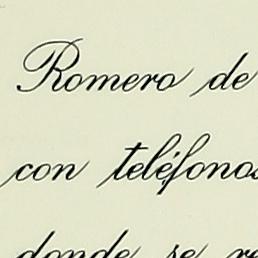 Romero de
con teléfonos
donde se re